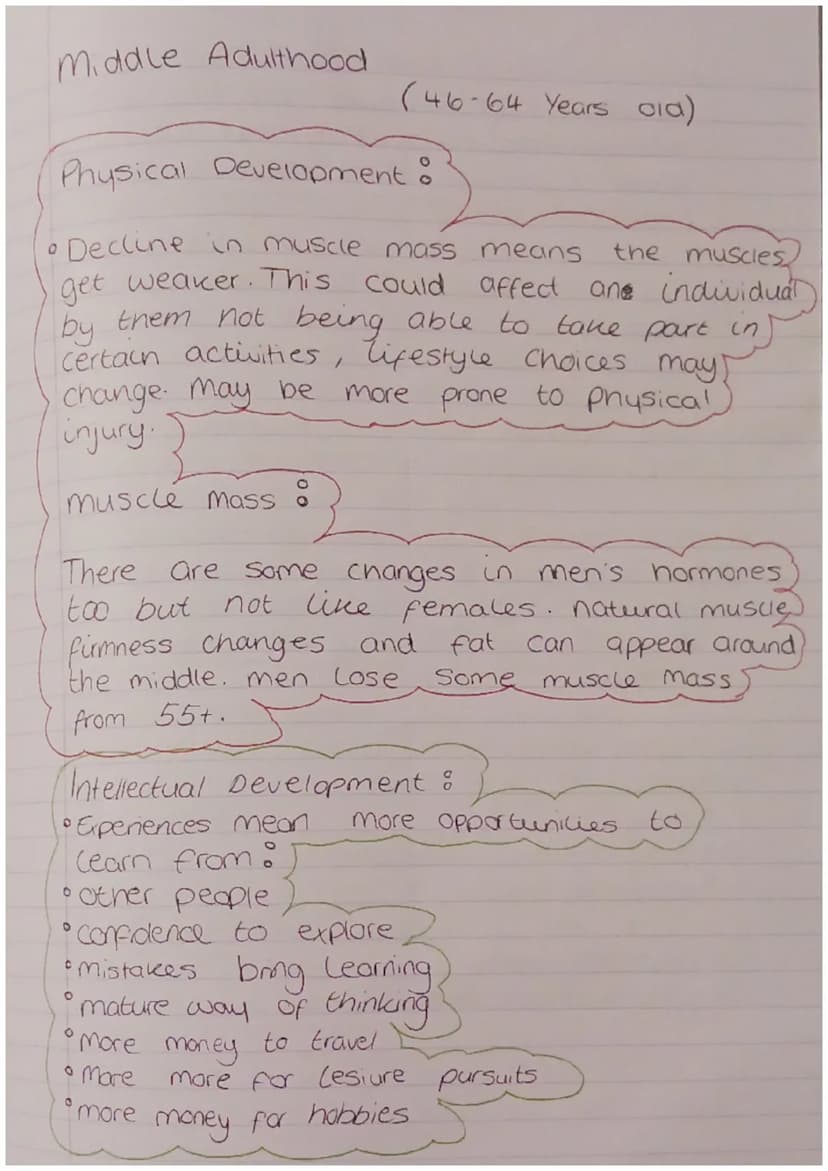 Middle Adulthood
(46-64 Years old)
Physical Development:
• Decline in muscle mass means the muscles
get weaker. This could affect ane individual
by them not being able to take part in
certain activities, lifestyle choices may
change. may be more prone to physical
injury.
muscle mass:
There are some changes in men's hormones
too but not like females. natural muscle
firmness changes and fat can appear around
the middle. men lose some muscle mass
from 55+.
Intellectual Development:
• Experiences mean more opportunities to
learn from:
• other people
• confidence to explore
• mistakes bring learning
• mature way of thinking
• more money to travel
• more more for lesiure pursuits
• more money for hobbies